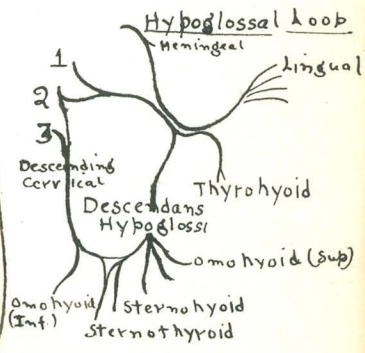 Hypoglossal Loop
Meningeal
1
Lingual
2
3
Descending
Cervical
Thyrohyoid
Descendans
Hypoglossi
Omohyoid (Sup)
Omohyoid
(Inf.)
Sternohyoid
Sternothyroid